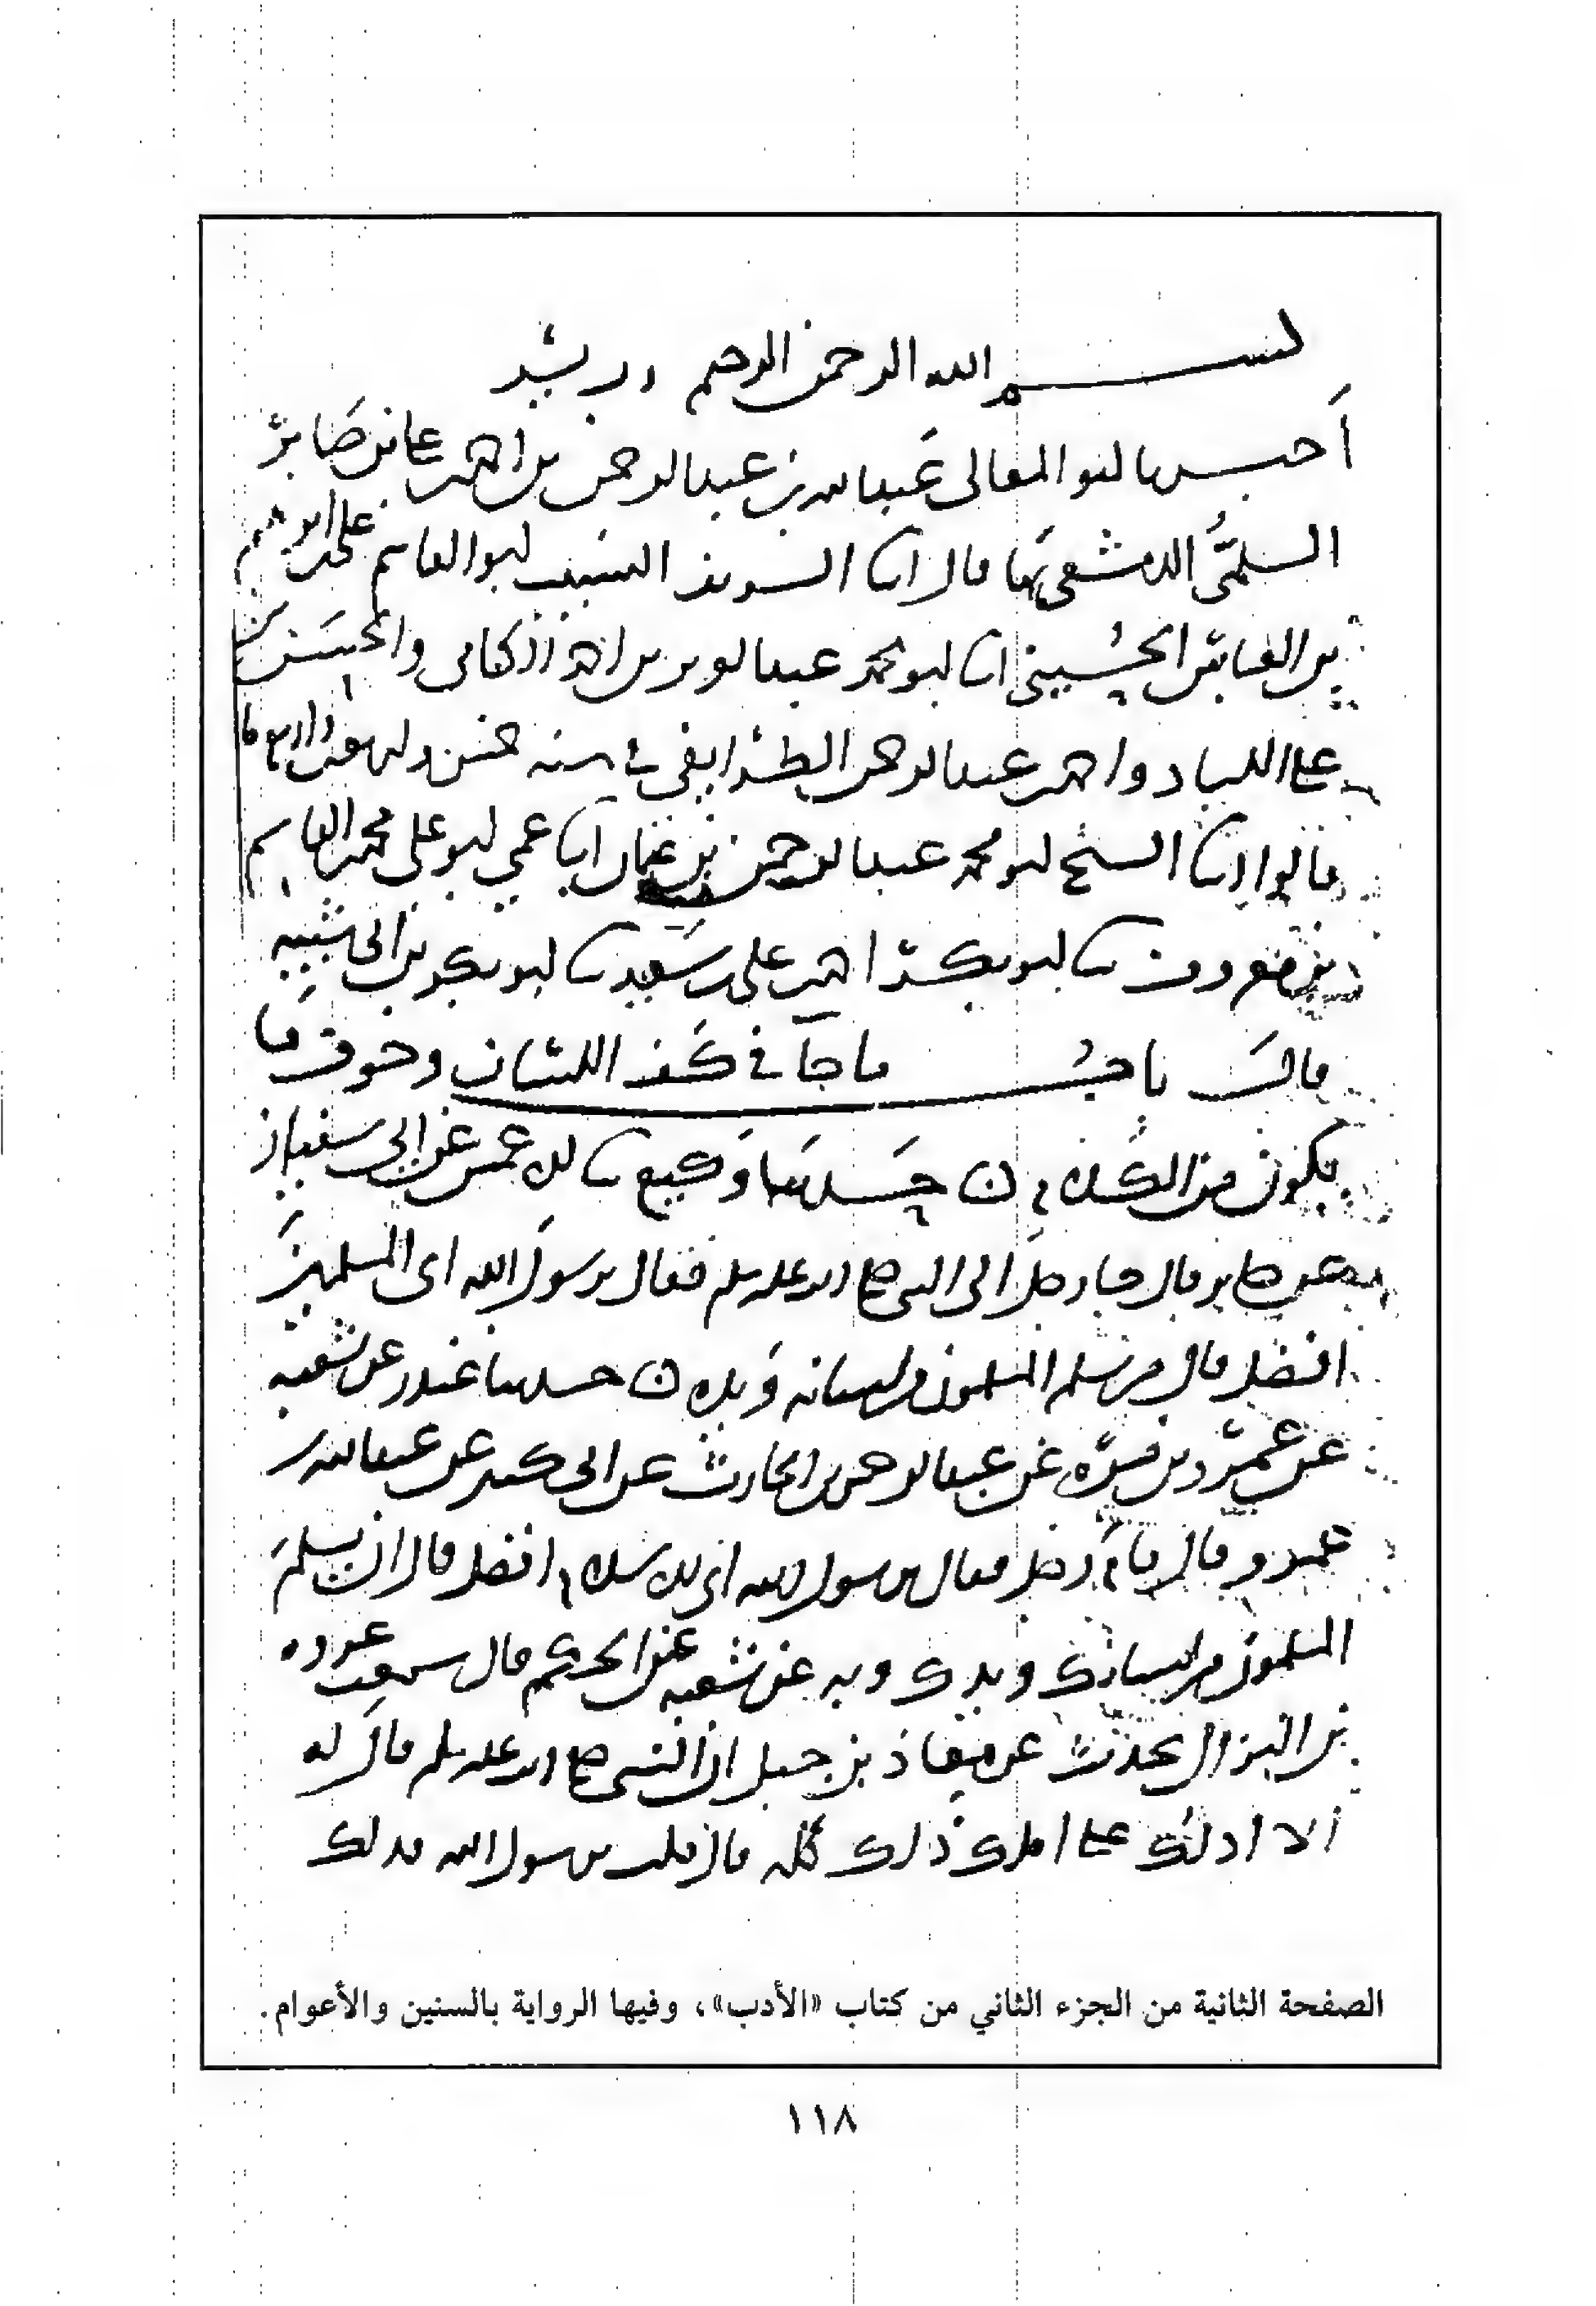 بسم الله الرحمن الرحيم رب يسر
أخبرنا ابو المعالي عبد الله بن عبد الرحمن بن احمد بن علي بن صابر
السلمي الدمشقي بها قال انا الشريف النسيب ابو القاسم علي بن ابرهيم
بن العباس الحسيني انا ابو محمد عبد العزيز بن احمد الكتاني والحسن بن
علي اللباد واحمد بن عبد الرحمن الطرايفي في سنة خمس
قالوا انا الشيخ ابو محمد عبد الرحمن بن عثمان انا عمي ابو علي محمد بن القاسم
بن معروف نا ابو بكر احمد بن علي بن سعيد نا ابو بكر بن ابي شيبه
قال باب ما جا في كف اللسان وخوف ما
يكون من الكلام حدثنا وكيع نا الاعمش عن ابي سفيان
عن جابر قال جا رجل الى النبي صلى الله عليه وسلم فقال يرسول الله اي المسلمين
افضل قال من سلم المسلمون من لسانه ويده حدثنا غندر عن شعبه
عن عمرو بن مره عن عبد الله بن الحارث عن ابي كثير عن عبد الله بن
عمرو قال قام رجل فقال يرسول الله اي الاسلام افضل قال ان يسلم
المسلمون من لسانك ويدك وبه عن شعبه عن الحكم قال سمعت عروه
بن النزال يحدث عن معاذ بن جبل ان النبي صلى الله عليه وسلم قال له
الا ادلك على املك ذلك كله قال قلت يرسول الله قولك
الصفحة الثانية من الجزء الثاني من كتاب «الأدب»، وفيها الرواية بالسنين والأعوام.
١١٨